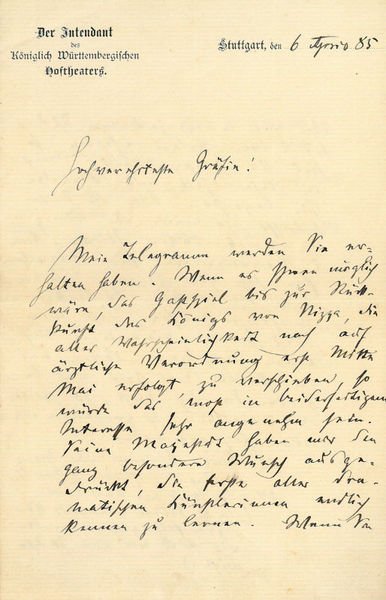 Der Intendant
des
Königlich Württembergischen
Hoftheaters.
Stuttgart, den 6 April 85
Hochverehrteste Gräfin!
Mein Telegramm werden Sie er-
halten haben. Wenn es Ihnen möglich
wäre, das Gastspiel bis zur Rück-
kunft des Königs von Nizza, die
aller Wahrscheinlichkeit nach auf
ärztliche Verordnung erst Mitte
Mai erfolgt, zu verschieben, so
würde das in beiderseitigem
Interesse sehr angenehm sein.
Seine Majestät haben mir den
ganz besonderen Wunsch ausge-
drückt, die erste aller dra-
matischen Künstlerinnen endlich
kennen zu lernen. Wenn Sie